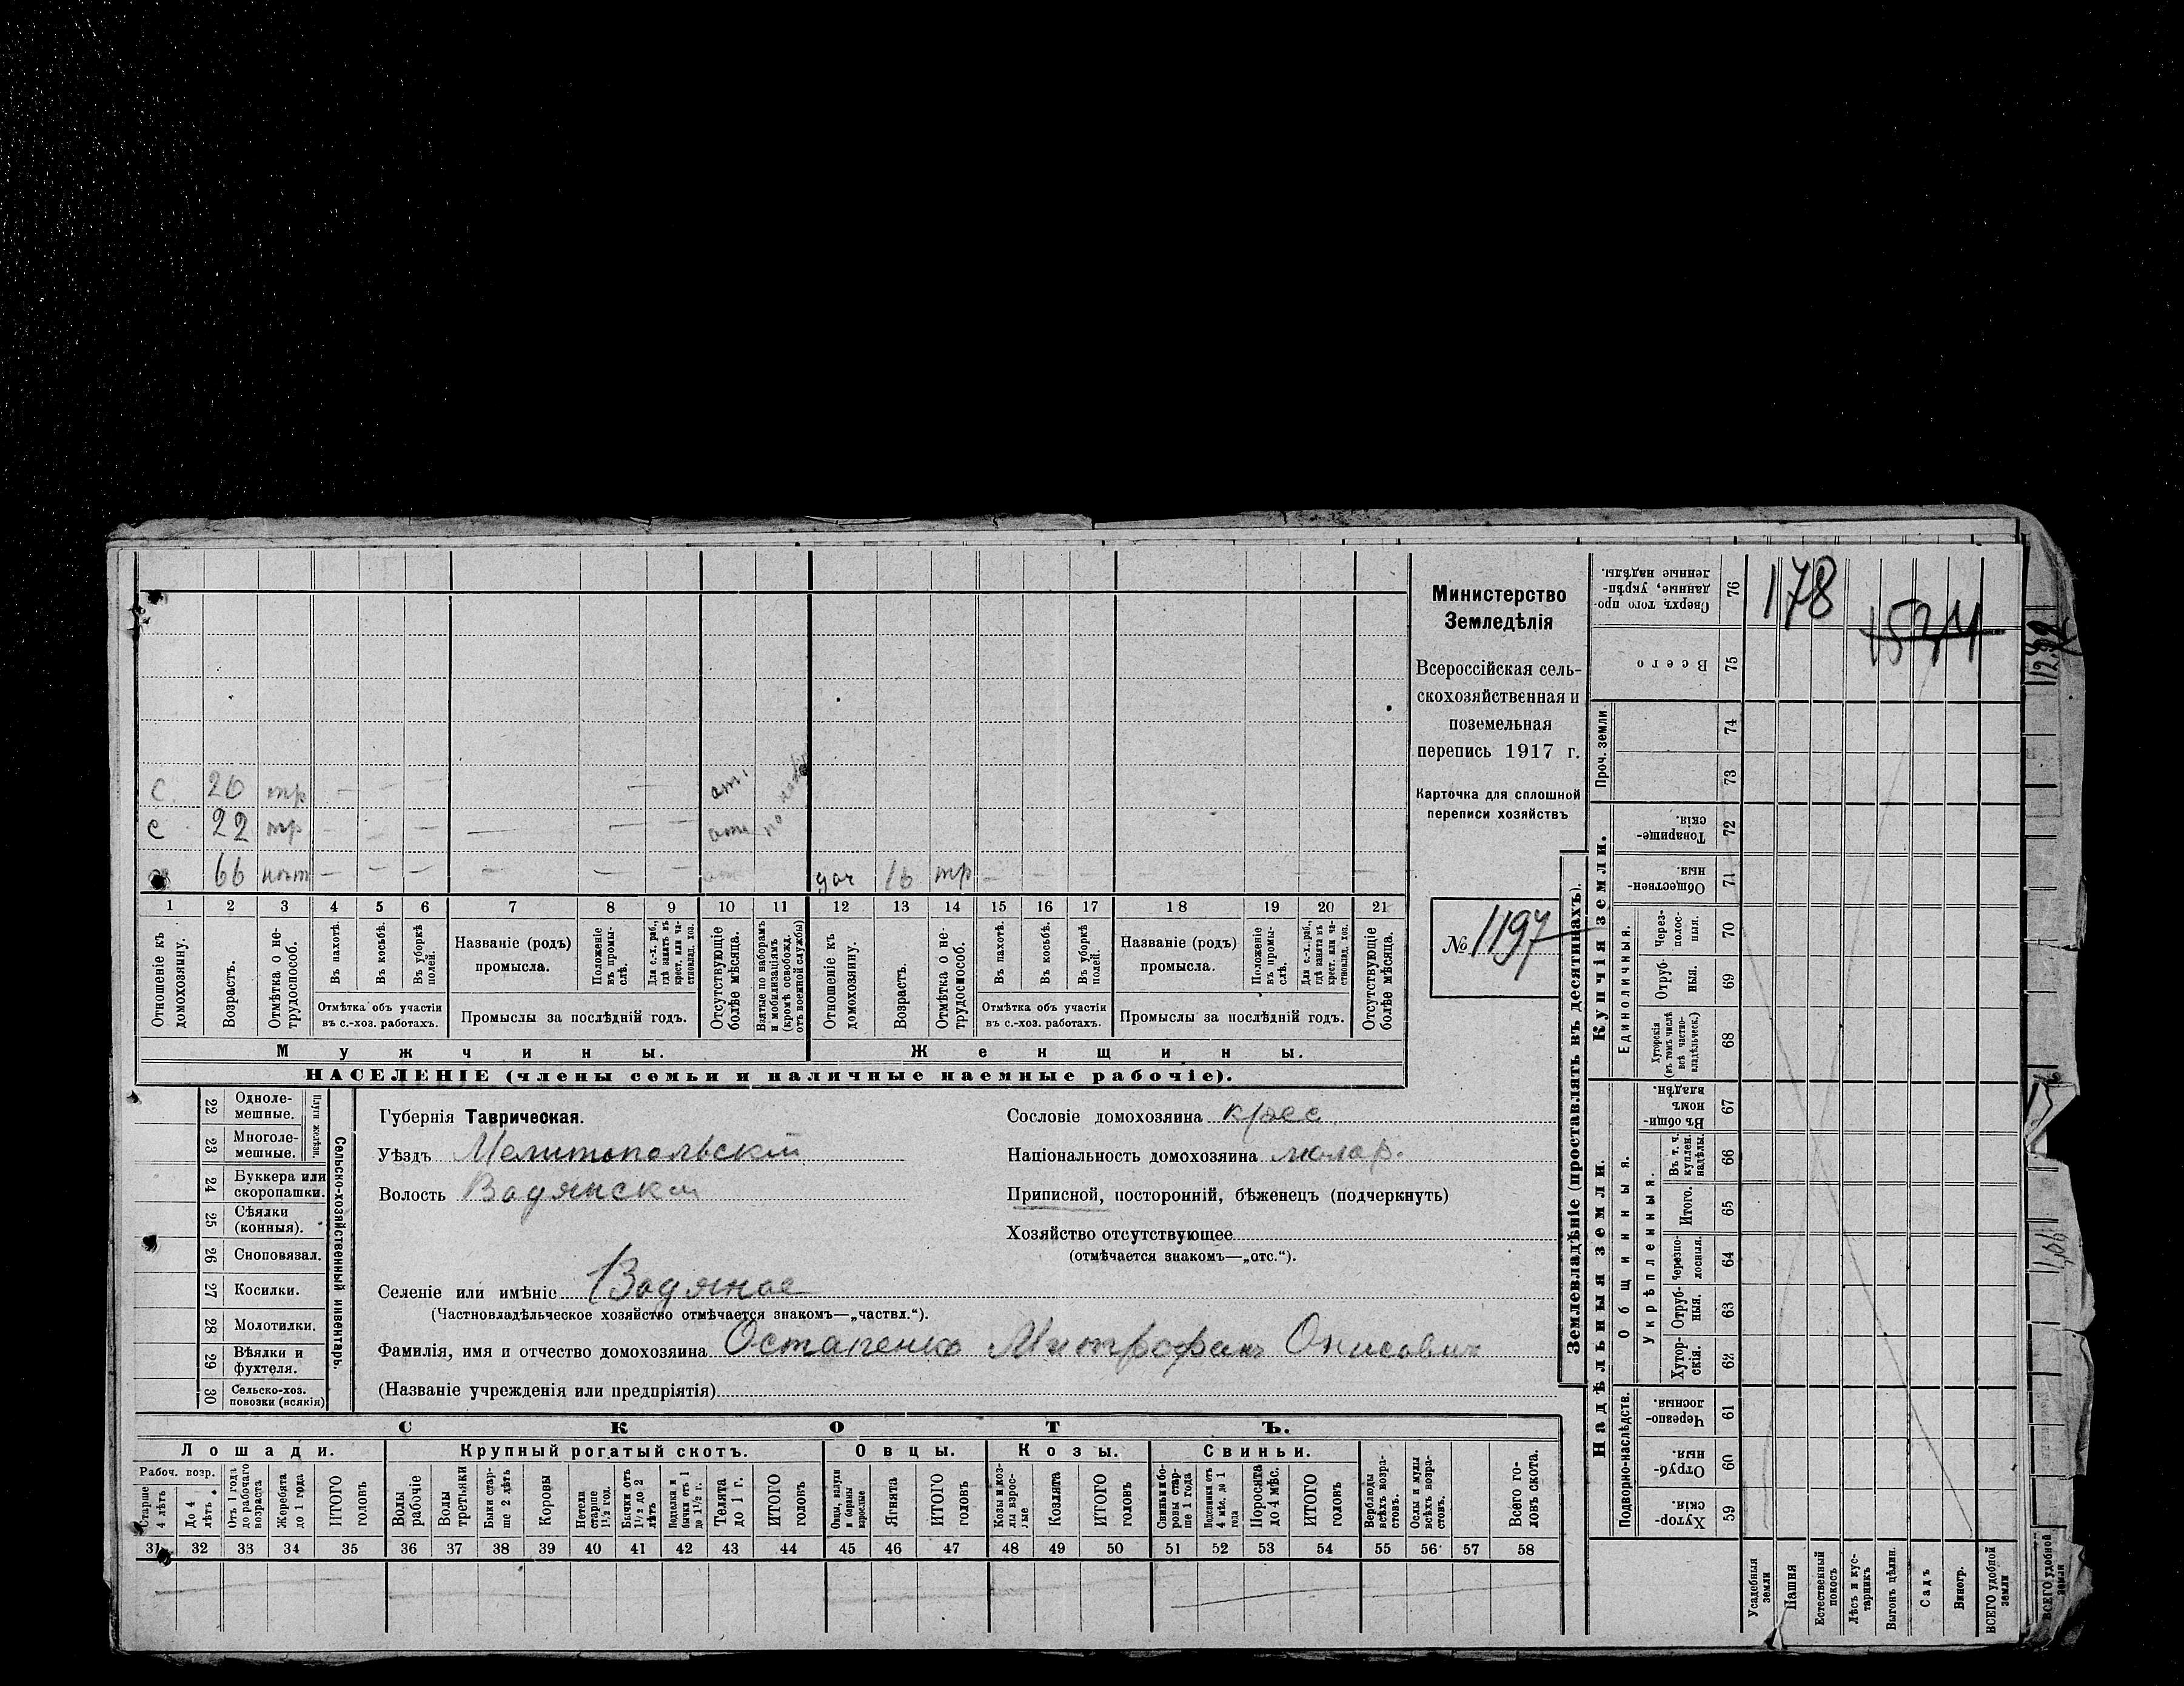 Министерство
Земледѣлія
Всероссійская сель-
скохозяйственная и
поземельная
перепись 1917 г.
Карточка для сплошной
переписи хозяйствъ
№ 1197
178
1534
С. 20 тр
с 22 тр
66 дог 16 тр
1 2 3 4 5 6 7 8 9 10 11 12 13 14 15 16 17 18 19 20 21
Отношеніе къ домохозяину.
Возрастъ.
Отмѣтка о не-трудоспособ.
Въ пахотѣ.
Въ косьбѣ.
Въ уборкѣ полей.
Отмѣтка объ участіи
въ с.-хоз. работахъ.
Названіе (родъ)
промысла.
Положеніе въ промы-слѣ.
Для с.-х. раб., гдѣ занятъ въ крест. или ча-стновлад. хоз.
Промыслы за послѣдній годъ.
Отсутствующіе болѣе мѣсяца.
Взятые по наборамъ и мобилизаціямъ (кромѣ освобожд. отъ военной службы)
Отношеніе къ домохозяину.
Возрастъ.
Отмѣтка о не-трудоспособ.
Въ пахотѣ.
Въ косьбѣ.
Въ уборкѣ полей.
Отмѣтка объ участіи
въ с.-хоз. работахъ.
Названіе (родъ)
промысла.
Положеніе въ промы-слѣ.
Для с.-х. раб., гдѣ занята въ крест. или ча-стновлад. хоз.
Промыслы за послѣдній годъ.
Отсутствующіе болѣе мѣсяца.
Мужчины.
Женщины.
НАСЕЛЕНІЕ (члены семьи и наличные наемные рабочіе).
22 Одноле-мешные.
23 Многоле-мешные.
Плуги желѣзн.
24 Буккера или скоропашки.
25 Сѣялки (конныя).
26 Сноповязал.
27 Косилки.
28 Молотилки.
29 Вѣялки и фухтеля.
30 Сельско-хоз. повозки (всякія)
Сельско-хозяйственный инвентарь.
Губернія Таврическая.
Уѣздъ Мелитопольскій
Волость Водянская
Селеніе или имѣніе Водяное
(Частновладѣльческое хозяйство отмѣчается знакомъ—„частвл.“).
Фамилія, имя и отчество домохозяина Остапенко Митрофанъ Онисович
(Названіе учрежденія или предпріятія)
Сословіе домохозяина крес
Національность домохозяина малор.
Приписной, посторонній, бѣженецъ (подчеркнуть)
Хозяйство отсутствующее
(отмѣчается знакомъ—„отс.“).
СКОТЪ.
Лошади. Крупный рогатый скотъ. Овцы. Козы. Свиньи.
Рабоч. возр.
Старше 4 лѣтъ
До 4 лѣтъ
Отъ 1 года до рабочаго возраста
Жеребята до 1 года
ИТОГО головъ
Волы рабочіе
Волы третьяки
Быки стар-ше 2 лѣтъ
Коровы
Нетели старше 1½ год.
Бычки отъ 1½ до 2 лѣтъ
Подтелки и бычки отъ 1 до 1½ г.
Телята до 1 г.
ИТОГО головъ
Овцы, валухи и бараны взрослые
Ягнята
ИТОГО головъ
Козы и коз-лы взрос-лые
Козлята
ИТОГО головъ
Свиньи и бо-ровы стар-ше 1 года
Подсвинки отъ 4 мѣс. до 1 года
Поросята до 4 мѣс.
ИТОГО головъ
Верблюды всѣхъ возра-стовъ.
Ослы и мулы всѣхъ возра-стовъ.
Всего го-ловъ скота.
31 32 33 34 35 36 37 38 39 40 41 42 43 44 45 46 47 48 49 50 51 52 53 54 55 56 57 58
Землевладѣніе (проставлять въ десятинахъ).
Надѣльныя земли.
Купчія земли.
Проч. земли
Подворно-наслѣдств.
Общинныя.
Укрѣпленныя.
Единоличныя.
Сверхъ того про-данные, укрѣп-ленные надѣлы. 76
Всего 75
74
73
Товарище-скія. 72
Обществен-ныя. 71
Через-полос-ныя. 70
Отруб-ныя. 69
Хуторскія (въ томъ числѣ всѣ частно-владѣльческ.) 68
Въ общи-номъ владѣн. 67
Въ т. ч. куплен. надѣлы. 66
Итого. 65
Черезпо-лосныя. 64
Отруб-ныя. 63
Хутор-скія. 62
Черезпо-лосныя. 61
Отруб-ныя. 60
Хутор-скія. 59
Усадебныя земли
Пашня
Естественный покосъ
Лѣсъ и кус-тарникъ
Выгонъ цѣлин.
Садъ
Виногр.
ВСЕГО удобной земли
ВСЕГО удобной земли